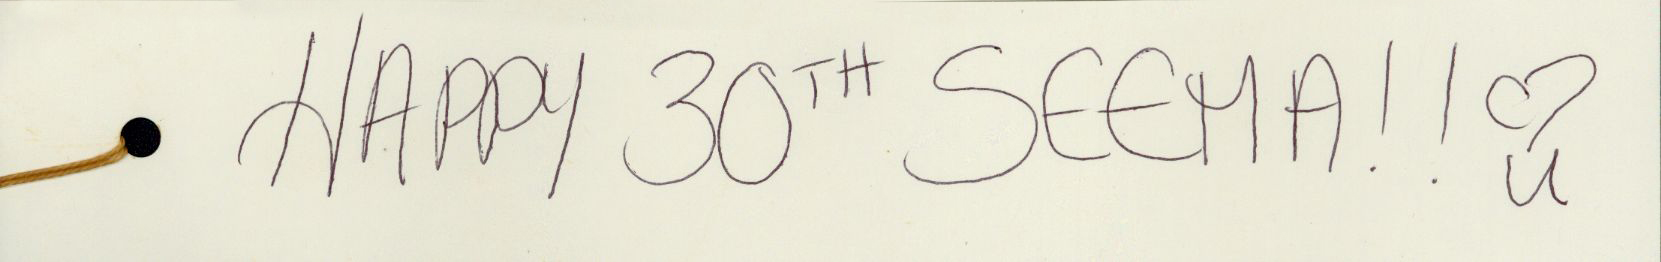 HAPPY 30TH SEEMA!! ♡ U